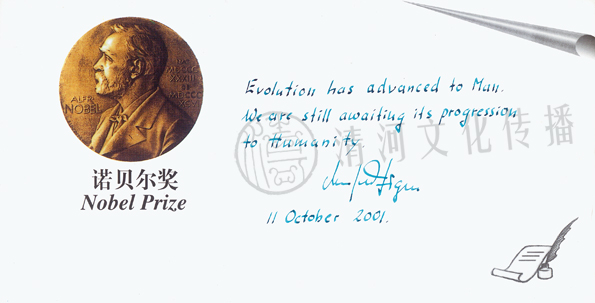 ALFR.
NOBEL
诺贝尔奖
Nobel Prize
Evolution has advanced to Man.
We are still awaiting its progression
to Humanity.
11 October 2001.
清河文化传播